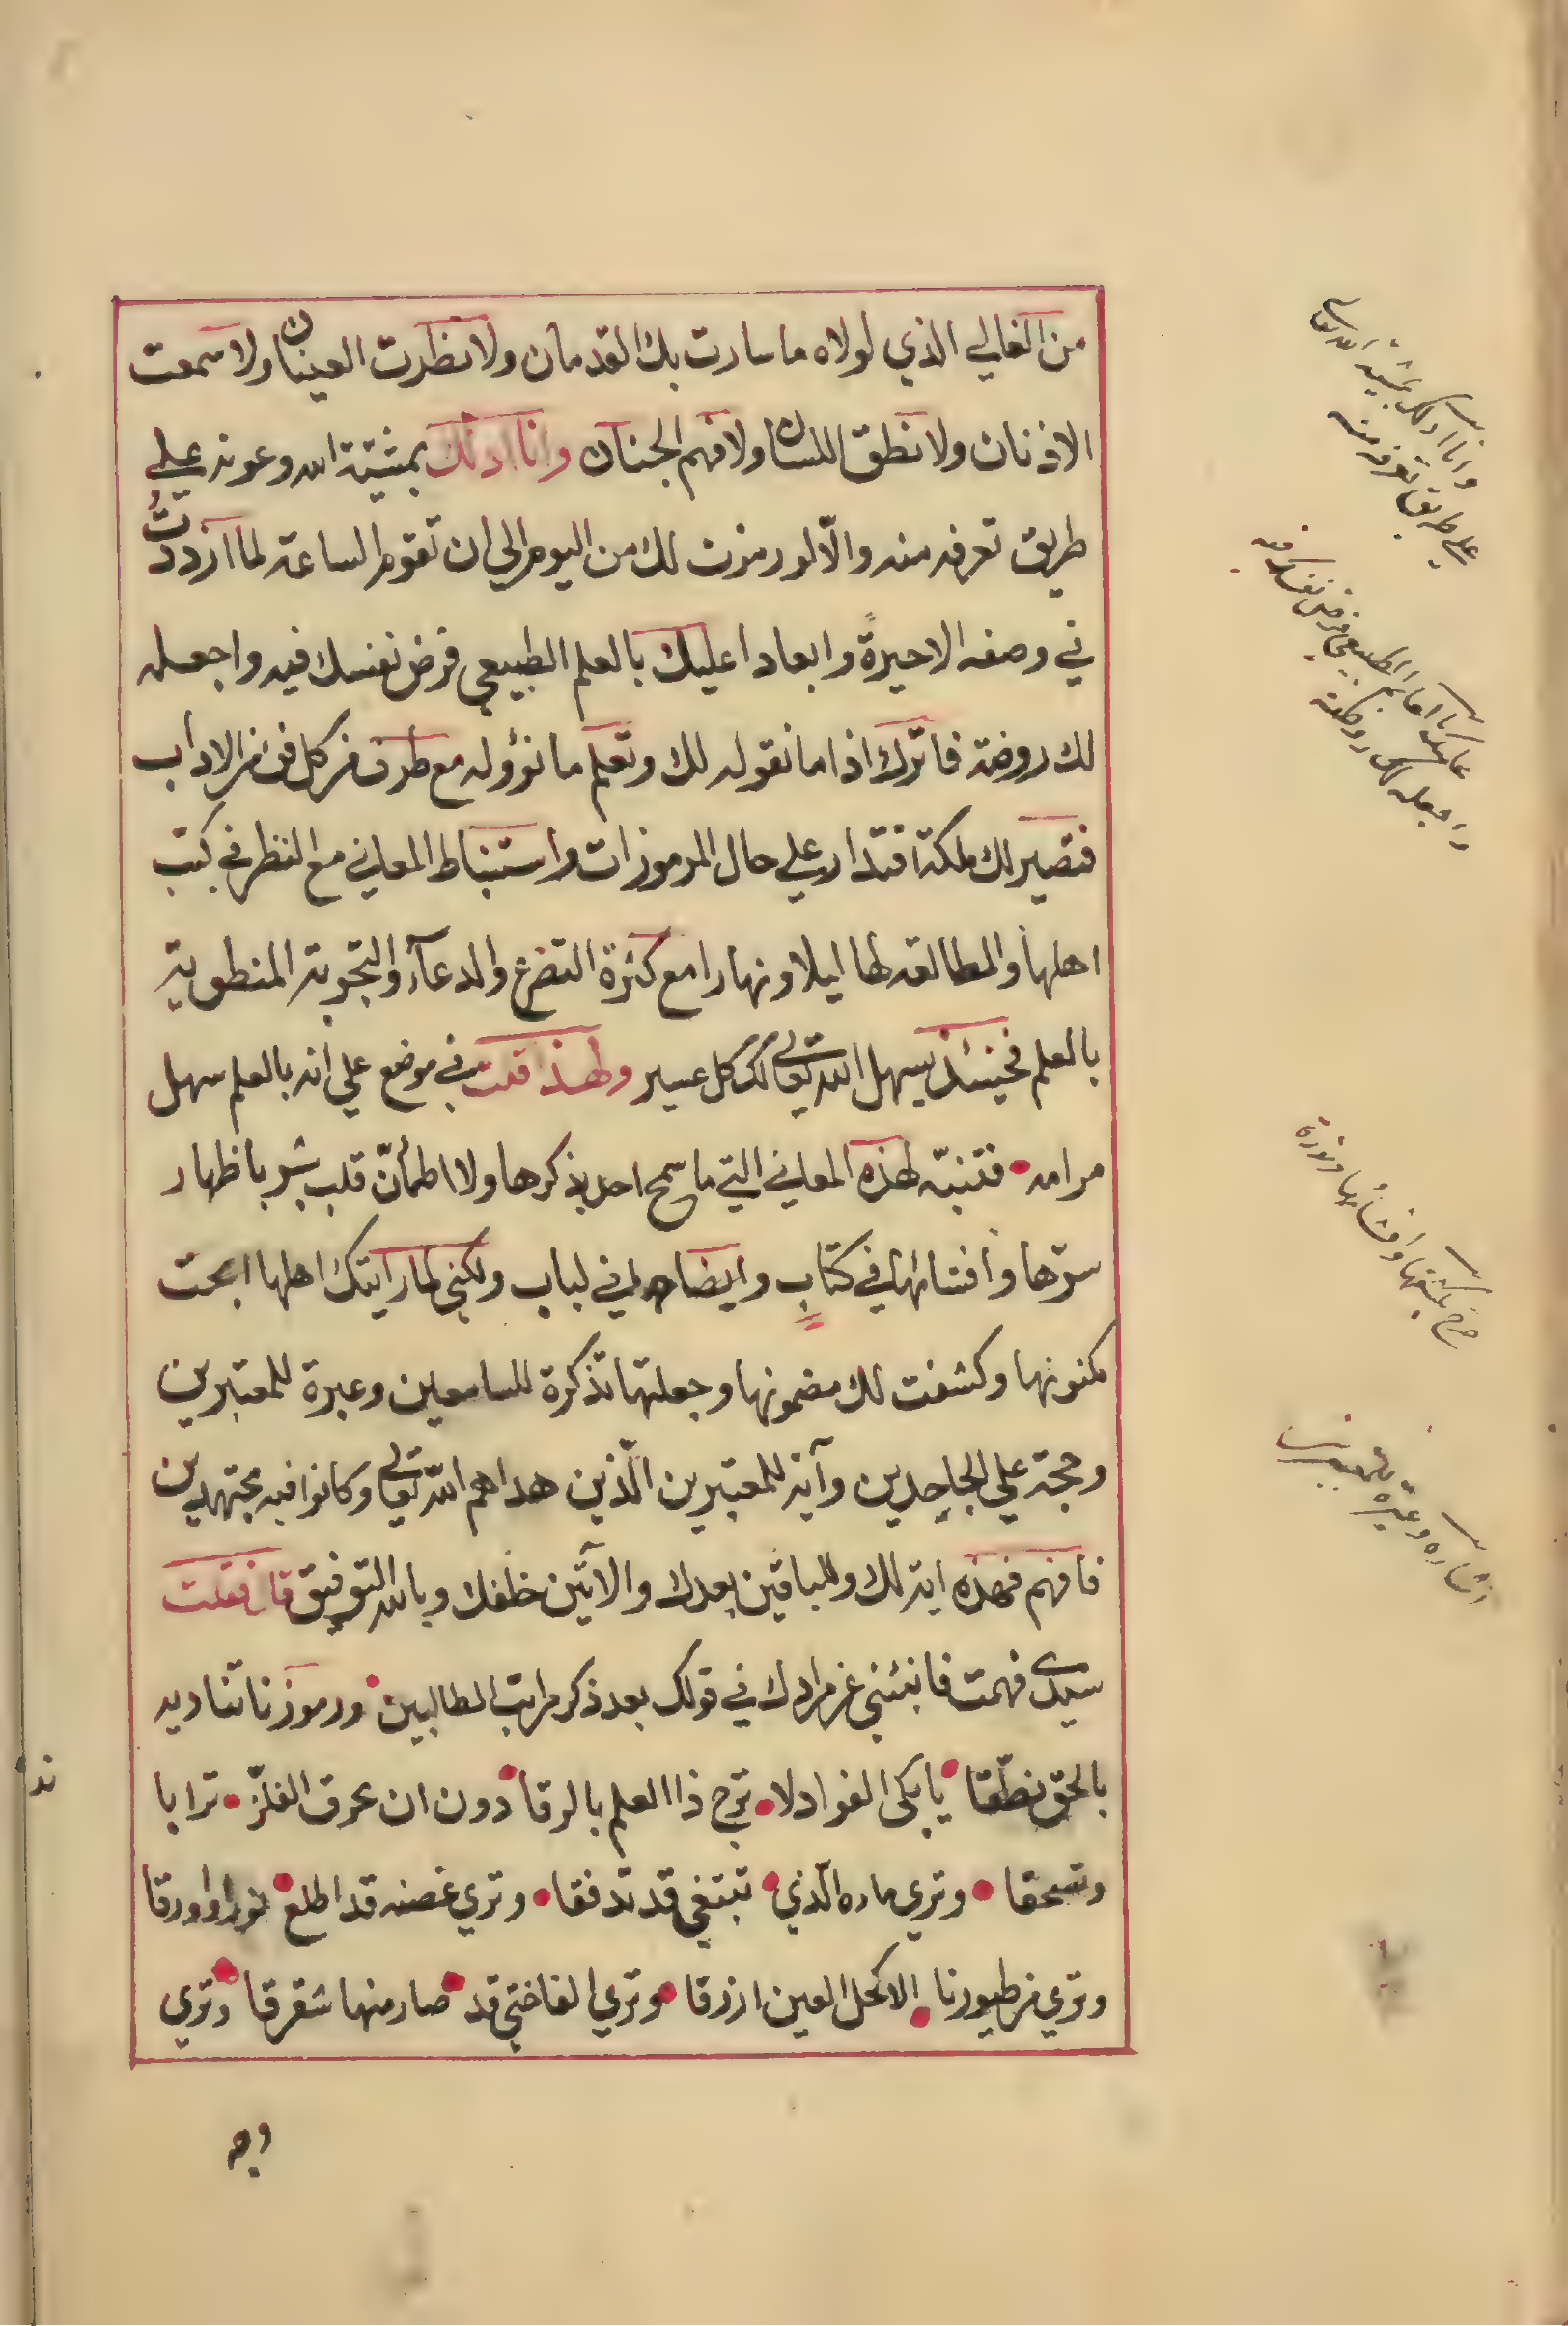 من الغالي الذي لولاه ما سارت بك القدمان ولا نظرت العينان ولا سمعت
الاذنان ولا نطق اللسان ولا فهم الجنان وانا ادلك بمشيئة الله وعونه علي
طريق تعرفه منه والّا لو رمزت لك من اليوم الي ان تقوم الساعة لما ازددتُ
في وصفه الا حيرةً وابعادا عليك بالعلم الطبيعي فرض نفسك فيه واجعله
لك روضة فاترك اذا ما نقوله لك وتعلم ما نؤوله مع طرف من كل فن من الاداب
فتصير لك ملكة اقتدار علي حال المرموزات واستنباط المعاني مع النظر في كتب
اهلها والمطالعة لها ليلا ونهارا مع كثرة التضرع والدعآء والتجربة المنطوية
بالعلم فحينئذ يسهل الله تعالي لك كل عسير ولهذا قلت في موضع علي انه بالعلم سهل
مرامه • فتنبّه لهذه المعاني التي ما سمح احد بذكرها ولا اطمأنّ قلب بشر باظهار
سرّها وافشائها في كتابٍ وايضاحها في لباب ولكني لما رايتك اهلها ابحت
مكنونها وكشفت لك مضمونها وجعلتها تذكرة للسامعين وعبرة للمعتبرين
وحجة علي الجاحدين وآية للمعتبرين الّذين هداهم اللّه تعالي وكانوا فيه مجتهدين
فافهم فهذه اية لك وللباقين بعدك والآتين خلفك وبالله التوفيق قال فقلت
سيدي فهمت فانبئني عن مرادك في قولك بعد ذكر مراتب الطالبين • ورموزنا تناديه
بالحق نطّقا • يا بكي الفواد لا • ترج ذا العلم بالرقا • دون ان تحرق الفلزّ • ترابا
وتسحقا • وتري ماءه الّذي • تبتغي قد تدفقا • وتري غصنه قد اطلع • نورا واورقا
وتري من طيورنا • الاكحل العين ازرقا • وتري الفاختي قد • صار منها شقرقا • وتري
وجه
وانا ادلك بمشيئة الله تعالي
علي طريق تعرفه منه
عليك بالعلم الطبيعي فرض نفسك فيه
واجعله لك روضة